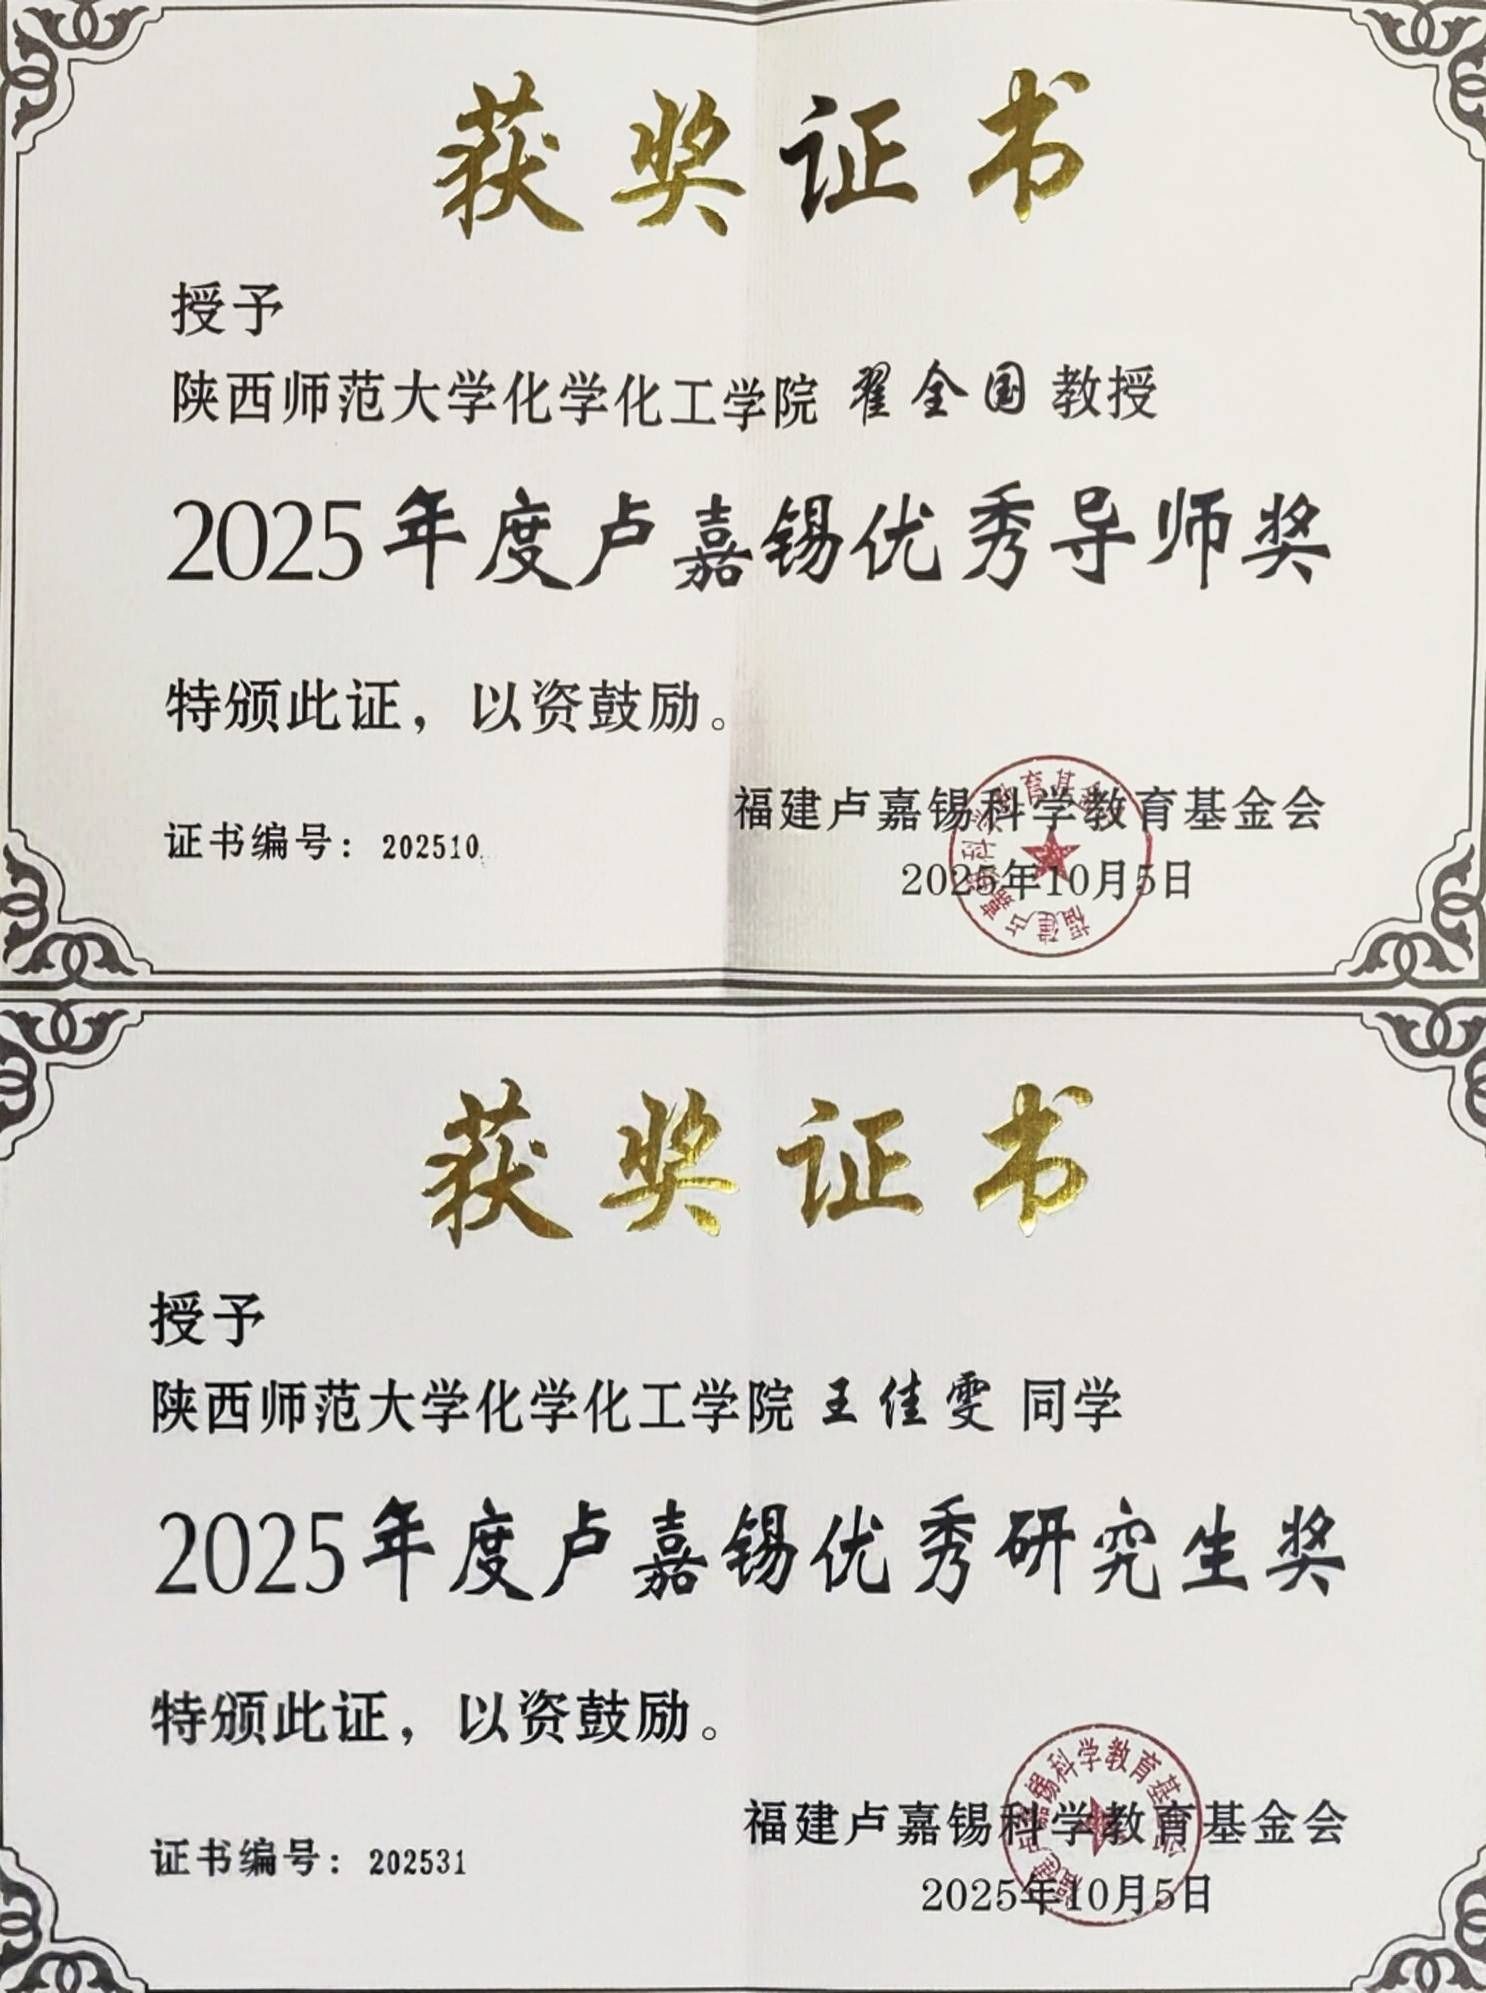 获奖证书
授予
陕西师范大学化学化工学院 翟全国 教授
2025年度卢嘉锡优秀导师奖
特颁此证，以资鼓励。
福建卢嘉锡科学教育基金会
证书编号：202510
2025年10月5日
福建卢嘉锡科学教育基金会
获奖证书
授予
陕西师范大学化学化工学院 王佳雯 同学
2025年度卢嘉锡优秀研究生奖
特颁此证，以资鼓励。
福建卢嘉锡科学教育基金会
证书编号：202531
2025年10月5日
福建卢嘉锡科学教育基金会